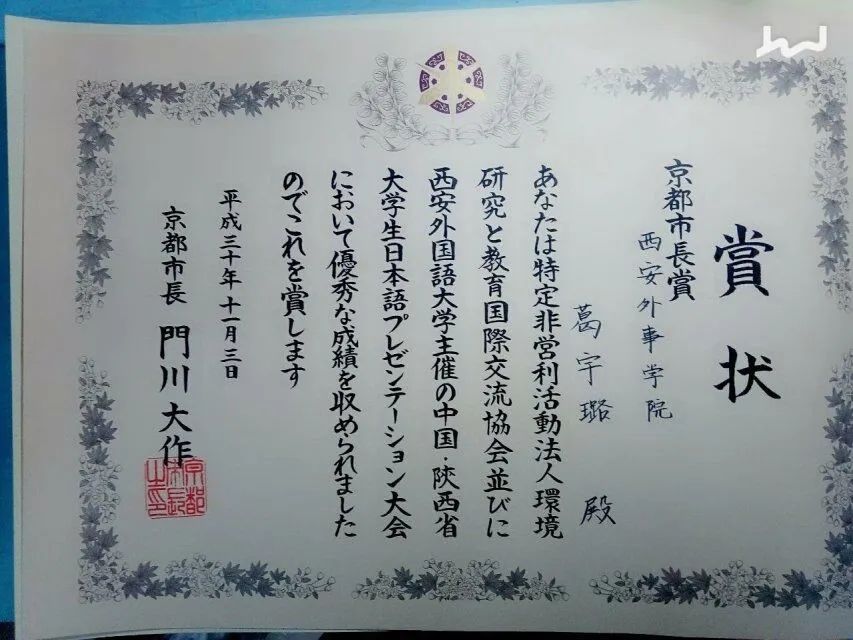 賞状
京都市長賞
西安外事学院
葛宇璐 殿
あなたは特定非営利活動法人環境
研究と教育国際交流協会並びに
西安外国語大学主催の中国・陝西省
大学生日本語プレゼンテーション大会
において優秀な成績を収められました
のでこれを賞します
平成三十年十一月三日
京都市長 門川大作
京都市長之印